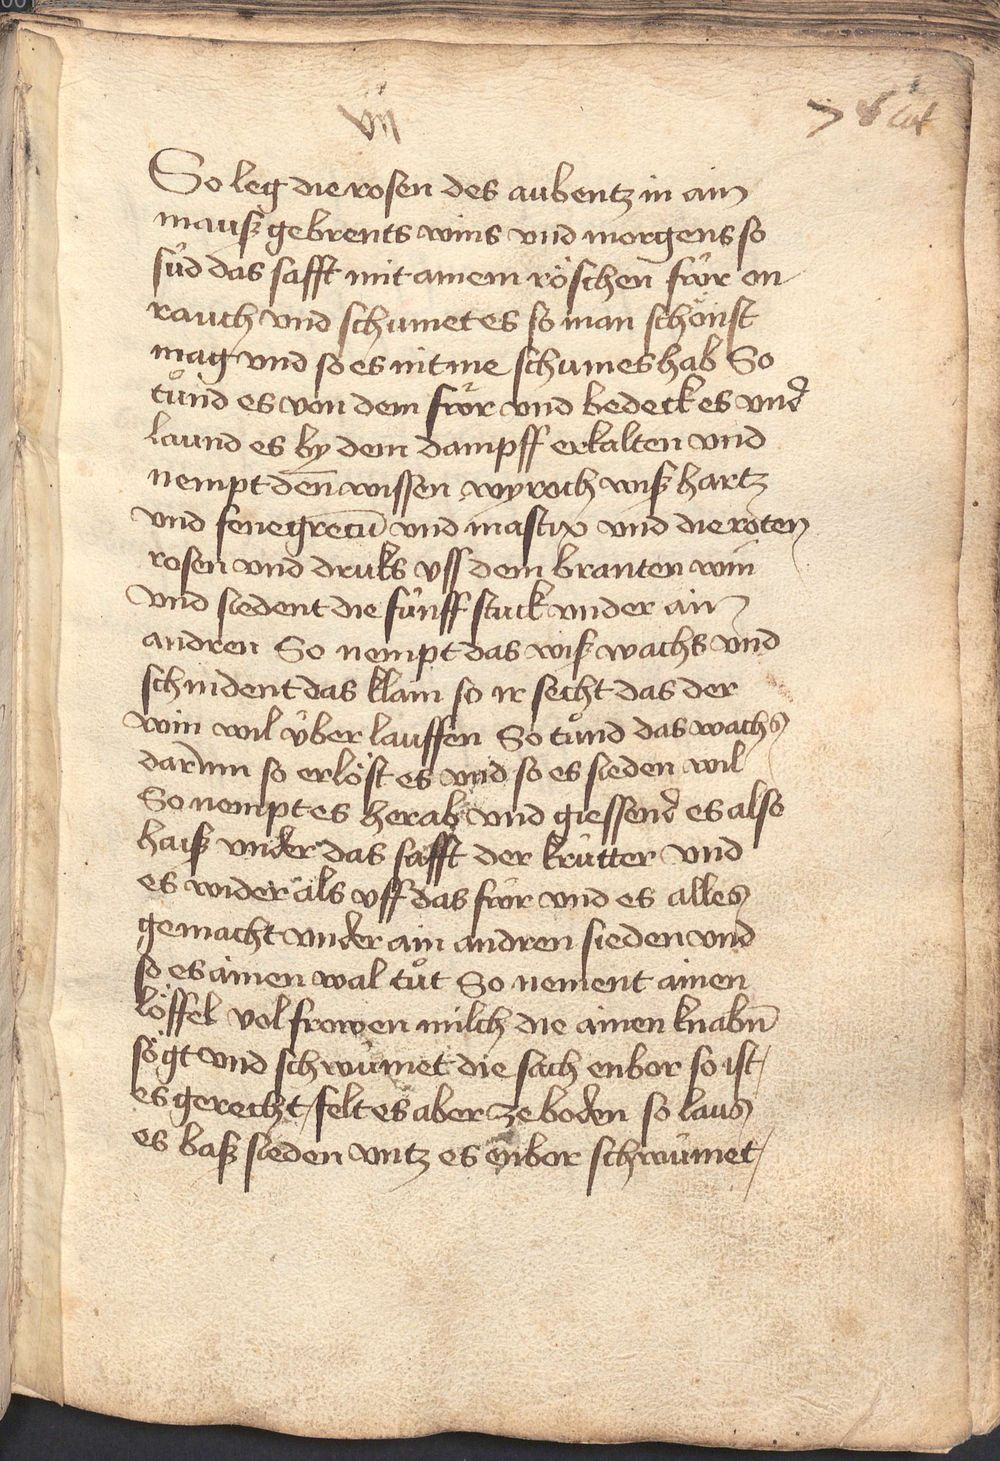 vij
So leg die rosen des aubentz in ain
mauß gebrents wins vnd morgens so
süd das safft mit ainem röschen für on
rauch vnd schumet es so man schönst
mag vnd so es nit me schumes hab So
tůnd es von dem fwr vnd bedeck es vnd
laund es by dem dampff erkalten vnd
nempt den wissen wyroch wiß hartz
vnd fenegrecū vnd mastix vnd die roten
rosen vnd druks vss dem branten win
vnd siedent die fünff stuck vnder ain
andren So nempt das wiß wachs vnd
schnident das klain so ir secht das der
win wil über lauffen So tůnd das wachs
darinn so erlöst es vnd so es sieden wil
So nempt es herab vnd giessend es also
haiß vnder das safft der krütter vnd
es wider als vff das fwr vnd es alles
gemacht vnder ain andren sieden vnd
so es ainen wal tůt So nement ainen
löffel vol frowen milch die ainen knabn̄
sögt vnd schwümet die sach enbor so ist
es gerecht / felt es aber ze boden so laus
es baß sieden vntz es enbor schwümet /